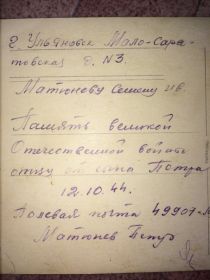 г. Ульяновск Мало-Сара-
товская д. N3.
Матюнову Семену Ив.
Память великой
Отечественной войны
отцу от сына Петра
12.10.44.
Полевая почта 49907-
Матюнев Петр